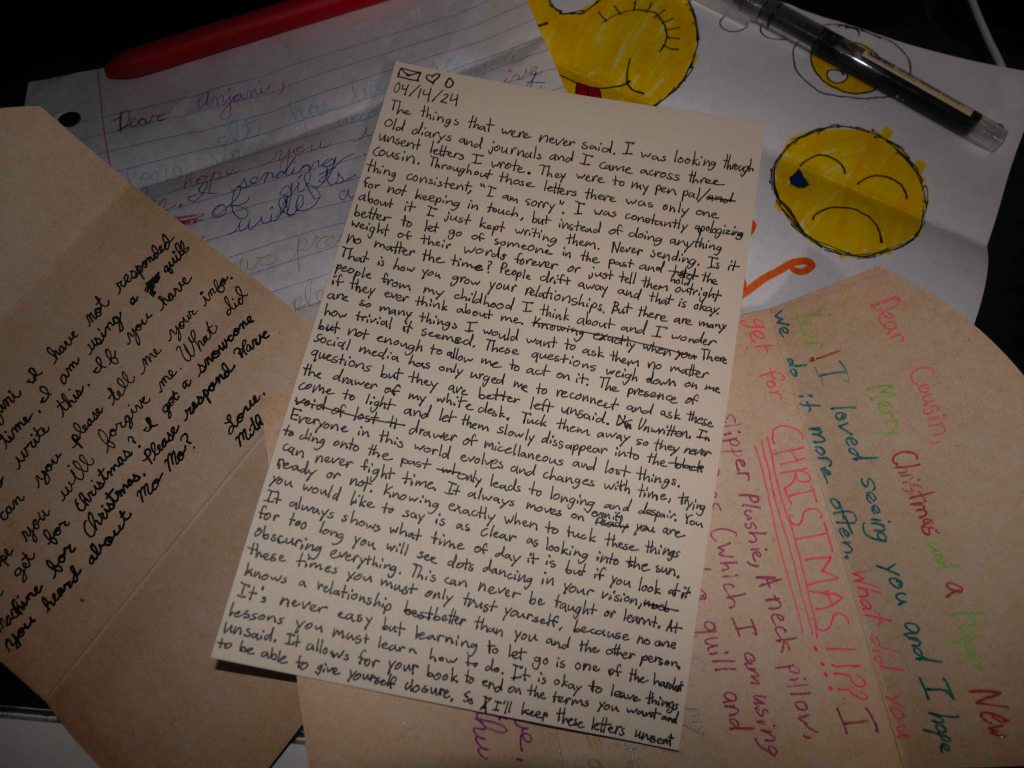 04/14/24
The things that were never said. I was looking through
Old diarys and journals and I came across three
unsent letters I wrote. They were to my pen pal/and
cousin. Throughout those letters there was only one
thing consistent, "I am sorry". I was constantly apologizing
for not keeping in touch, but instead of doing anything
about it I just kept writing them. Never sending. Is it
better to let go of someone in the past and hold the
weight of their words forever or just tell them outright
no matter the time? People drift away and that is okay.
That is how you grow your relationships. But there are many
people from my childhood I think about and I wonder
if they ever think about me. Knowing exactly when you There
are so many things I would want to ask them no matter
how trivial it seemed. These questions weigh down on me
but not enough to allow me to act on it. The presence of
social media has only urged me to reconnect and ask these
questions but they are better left unsaid. Unwritten. In
the drawer of my white desk. Tuck them away so they never
come to light and let them slowly dissappear into the black
void of lost it drawer of micellaneous and lost things.
Everyone in this world evolves and changes with time, trying
to cling onto the past only leads to longing and despair. You
can never fight time. It always moves on ready you are
ready or not. Knowing exactly when to tuck these things
you would like to say is as clear as looking into the sun.
It always shows what time of day it is but if you look at it
for too long you will see dots dancing in your vision,
obscuring everything. This can never be taught or learnt. At
these times you must only trust yourself, because no one
knows a relationship best better than you and the other person.
It's never easy but learning to let go is one of the hardest
lessons you must learn how to do. It is okay to leave things
unsaid. It allows for your book to end on the terms you want and
to be able to give yourself closure. So I'll keep these letters unsent
Dear Anjani,
It has
hope you
sending
of gifts
write a
I have not responded
time. I am using a quill
write this. If you have
can you please tell me your info.
you will forgive me. What did
get for Christmas? I got a snowcone
machine for Christmas. Please respond. Have
you heard about Mo Mo?
Love,
Dear Cousin,
Merry Christmas and a Happy New
Year! I loved seeing you and I hope
we do it more often. What did you
get for CHRISTMAS!!?? I
slipper plushie, A neck pillow,
(which I am using
a quill and